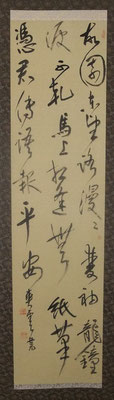 故園東望路漫〻雙袖龍鐘
淚不乾馬上相逢無紙筆
憑君傳語報平安